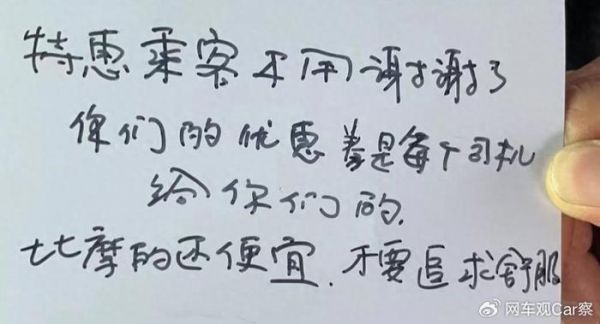 特惠乘客不用谢谢了
你们的优惠券是每个司机
给你们的.
比摩的还便宜.不要追求舒服
网车观Car察